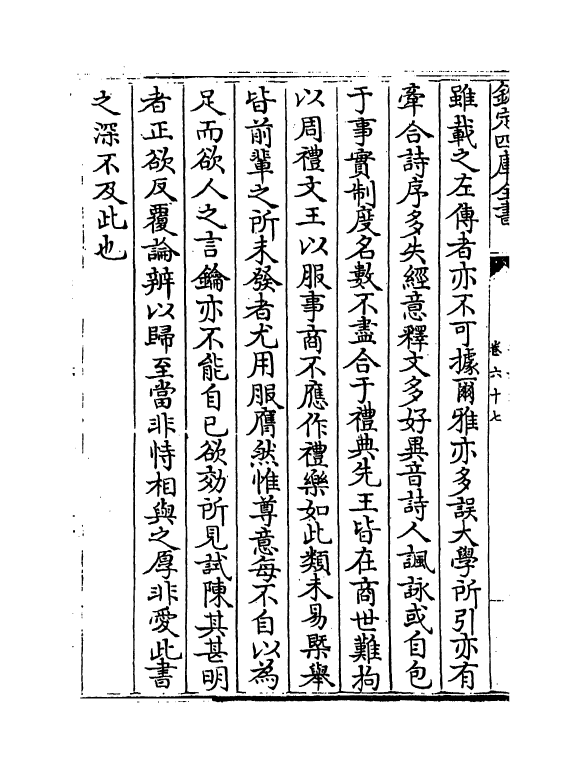 欽定四庫全書
卷六十七
雖載之左傳者亦不可據爾雅亦多誤大學所引亦有
牽合詩序多失經意釋文多好異音詩人諷詠或自包
于事實制度名數不盡合于禮典先王皆在商世難拘
以周禮文王以服事商不應作禮樂如此類未易槩舉
皆前輩之所未發者尤用服膺然惟尊意每不自以為
足而欲人之言鑰亦不能自已欲効所見試陳其甚明
者正欲反覆論辨以歸至當非恃相與之厚非愛此書
之深不及此也